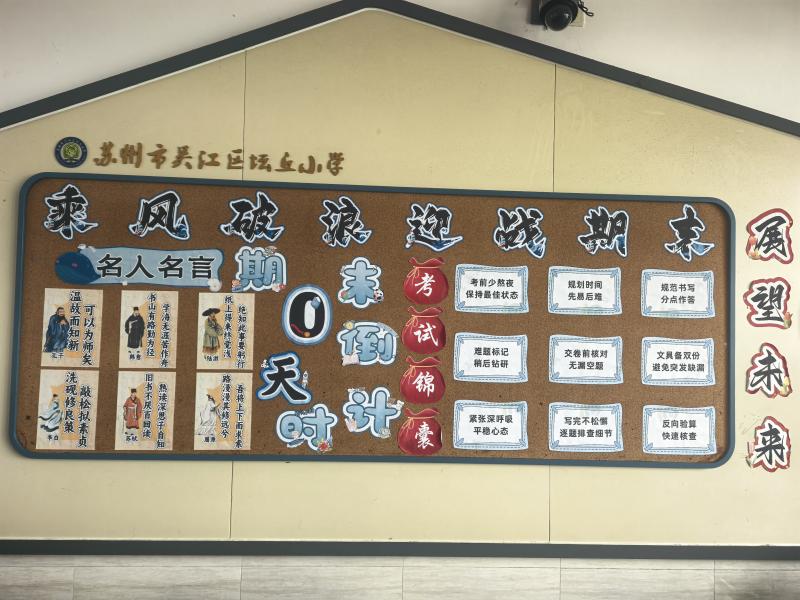 苏州市吴江区坛丘小学
乘风破浪迎战期末
展望未来
名人名言
温故而知新
可以为师矣
孔子
书山有路勤为径
学海无涯苦作舟
韩愈
纸上得来终觉浅
绝知此事要躬行
陆游
洗砚修良策
敲松拟素贞
李白
旧书不厌百回读
熟读深思子自知
苏轼
路漫漫其修远兮
吾将上下而求索
屈原
期末倒计时
0天
考试锦囊
考前少熬夜
保持最佳状态
规划时间
先易后难
规范书写
分点作答
难题标记
稍后钻研
交卷前核对
无漏空题
文具备双份
避免突发缺漏
紧张深呼吸
平稳心态
写完不松懈
逐题排查细节
反向验算
快速核查